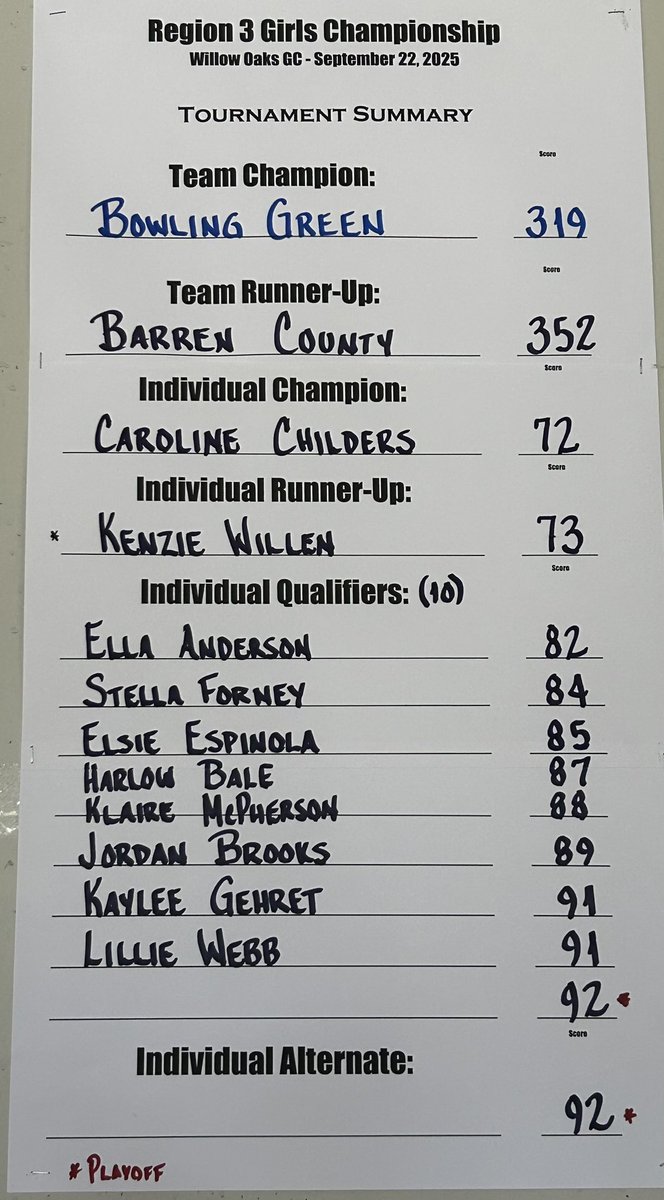 Region 3 Girls Championship
Willow Oaks GC - September 22, 2025
TOURNAMENT SUMMARY
Score
Team Champion:
BOWLING GREEN 319
Score
Team Runner-Up:
BARREN COUNTY 352
Score
Individual Champion:
CAROLINE CHILDERS 72
Score
Individual Runner-Up:
* KENZIE WILLEN 73
Score
Individual Qualifiers: (10)
ELLA ANDERSON 82
STELLA FORNEY 84
ELSIE ESPINOLA 85
HARLOW BALE 87
KLAIRE McPHERSON 88
JORDAN BROOKS 89
KAYLEE GEHRET 91
LILLIE WEBB 91
92 *
Score
Individual Alternate:
92 *
* PLAYOFF